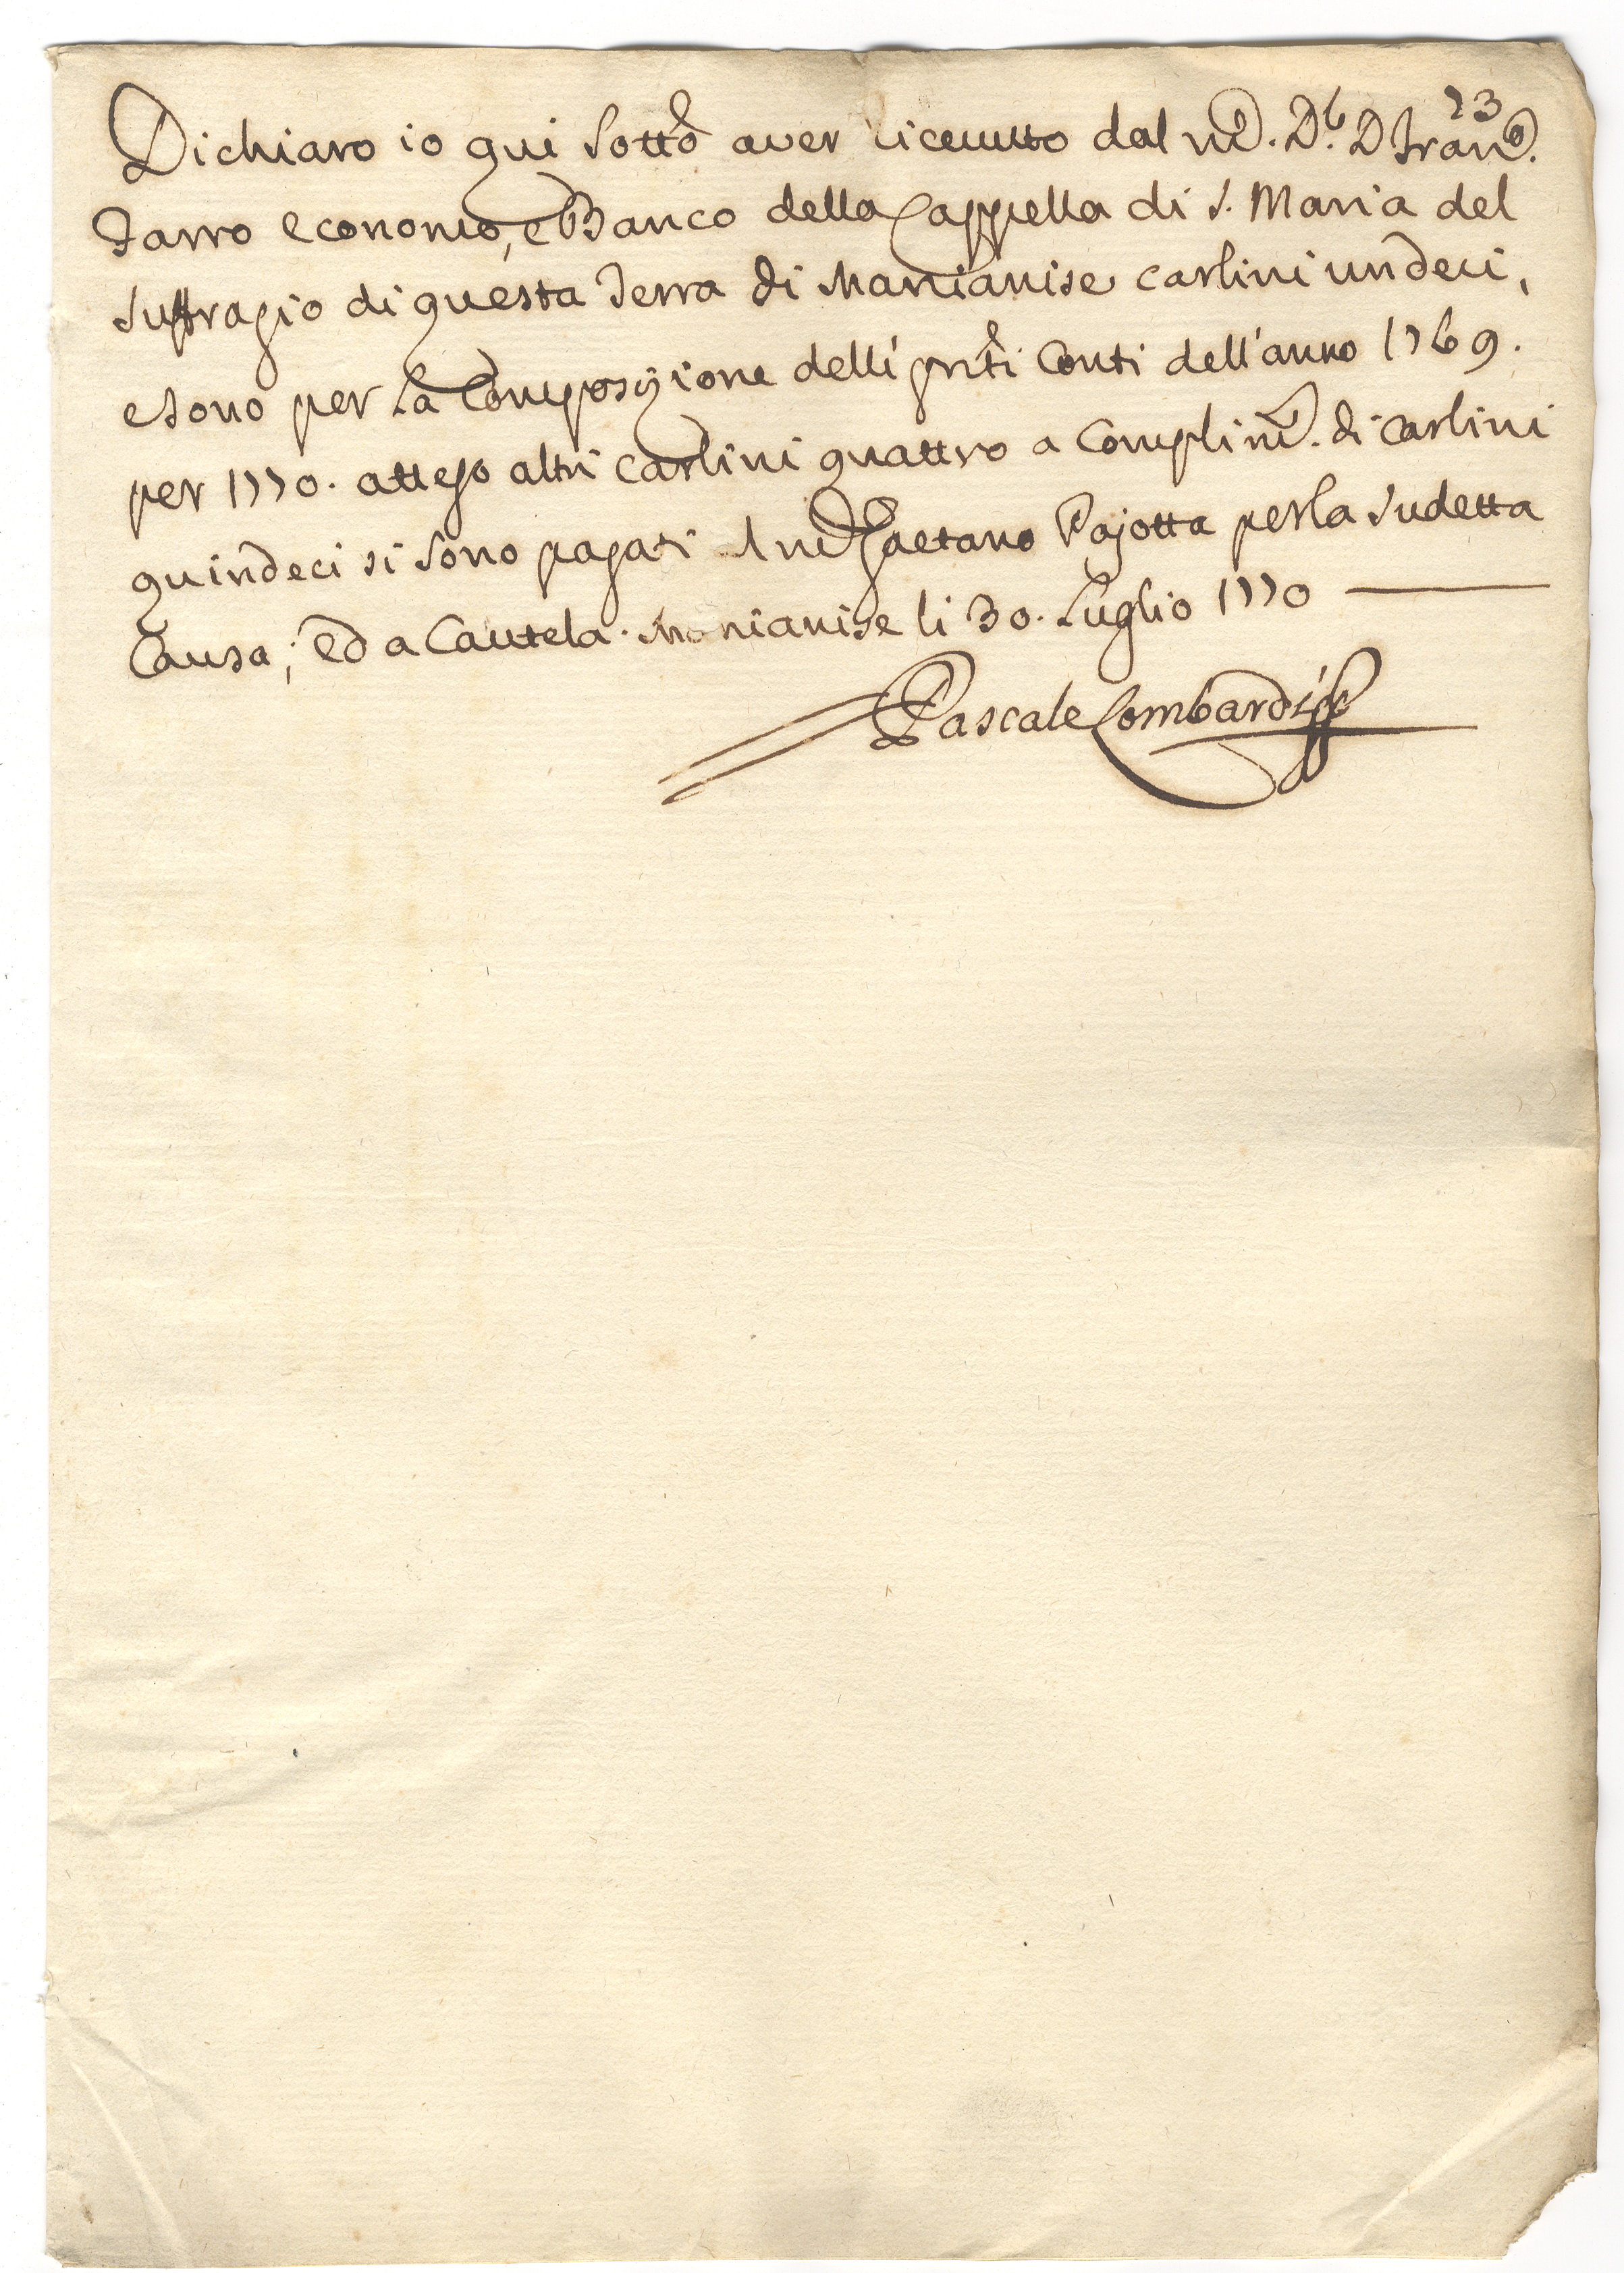 23
Dichiaro io qui sottō aver ricevuto dal m.co D.r D Fran.co
Farro economo, e Banco della Cappella di S. Maria del
suffragio di questa Terra di Marcianise carlini undeci,
e sono per la composizione delli pñti Conti dell'anno 1769.
per 1770. atteso altri carlini quattro a complim.to di carlini
quindeci si sono pagati al m.co Gaetano Pajotta per la sudetta
Causa; ed a Cautela. Marcianise li 30. Luglio 1770
Pascale Lombardi